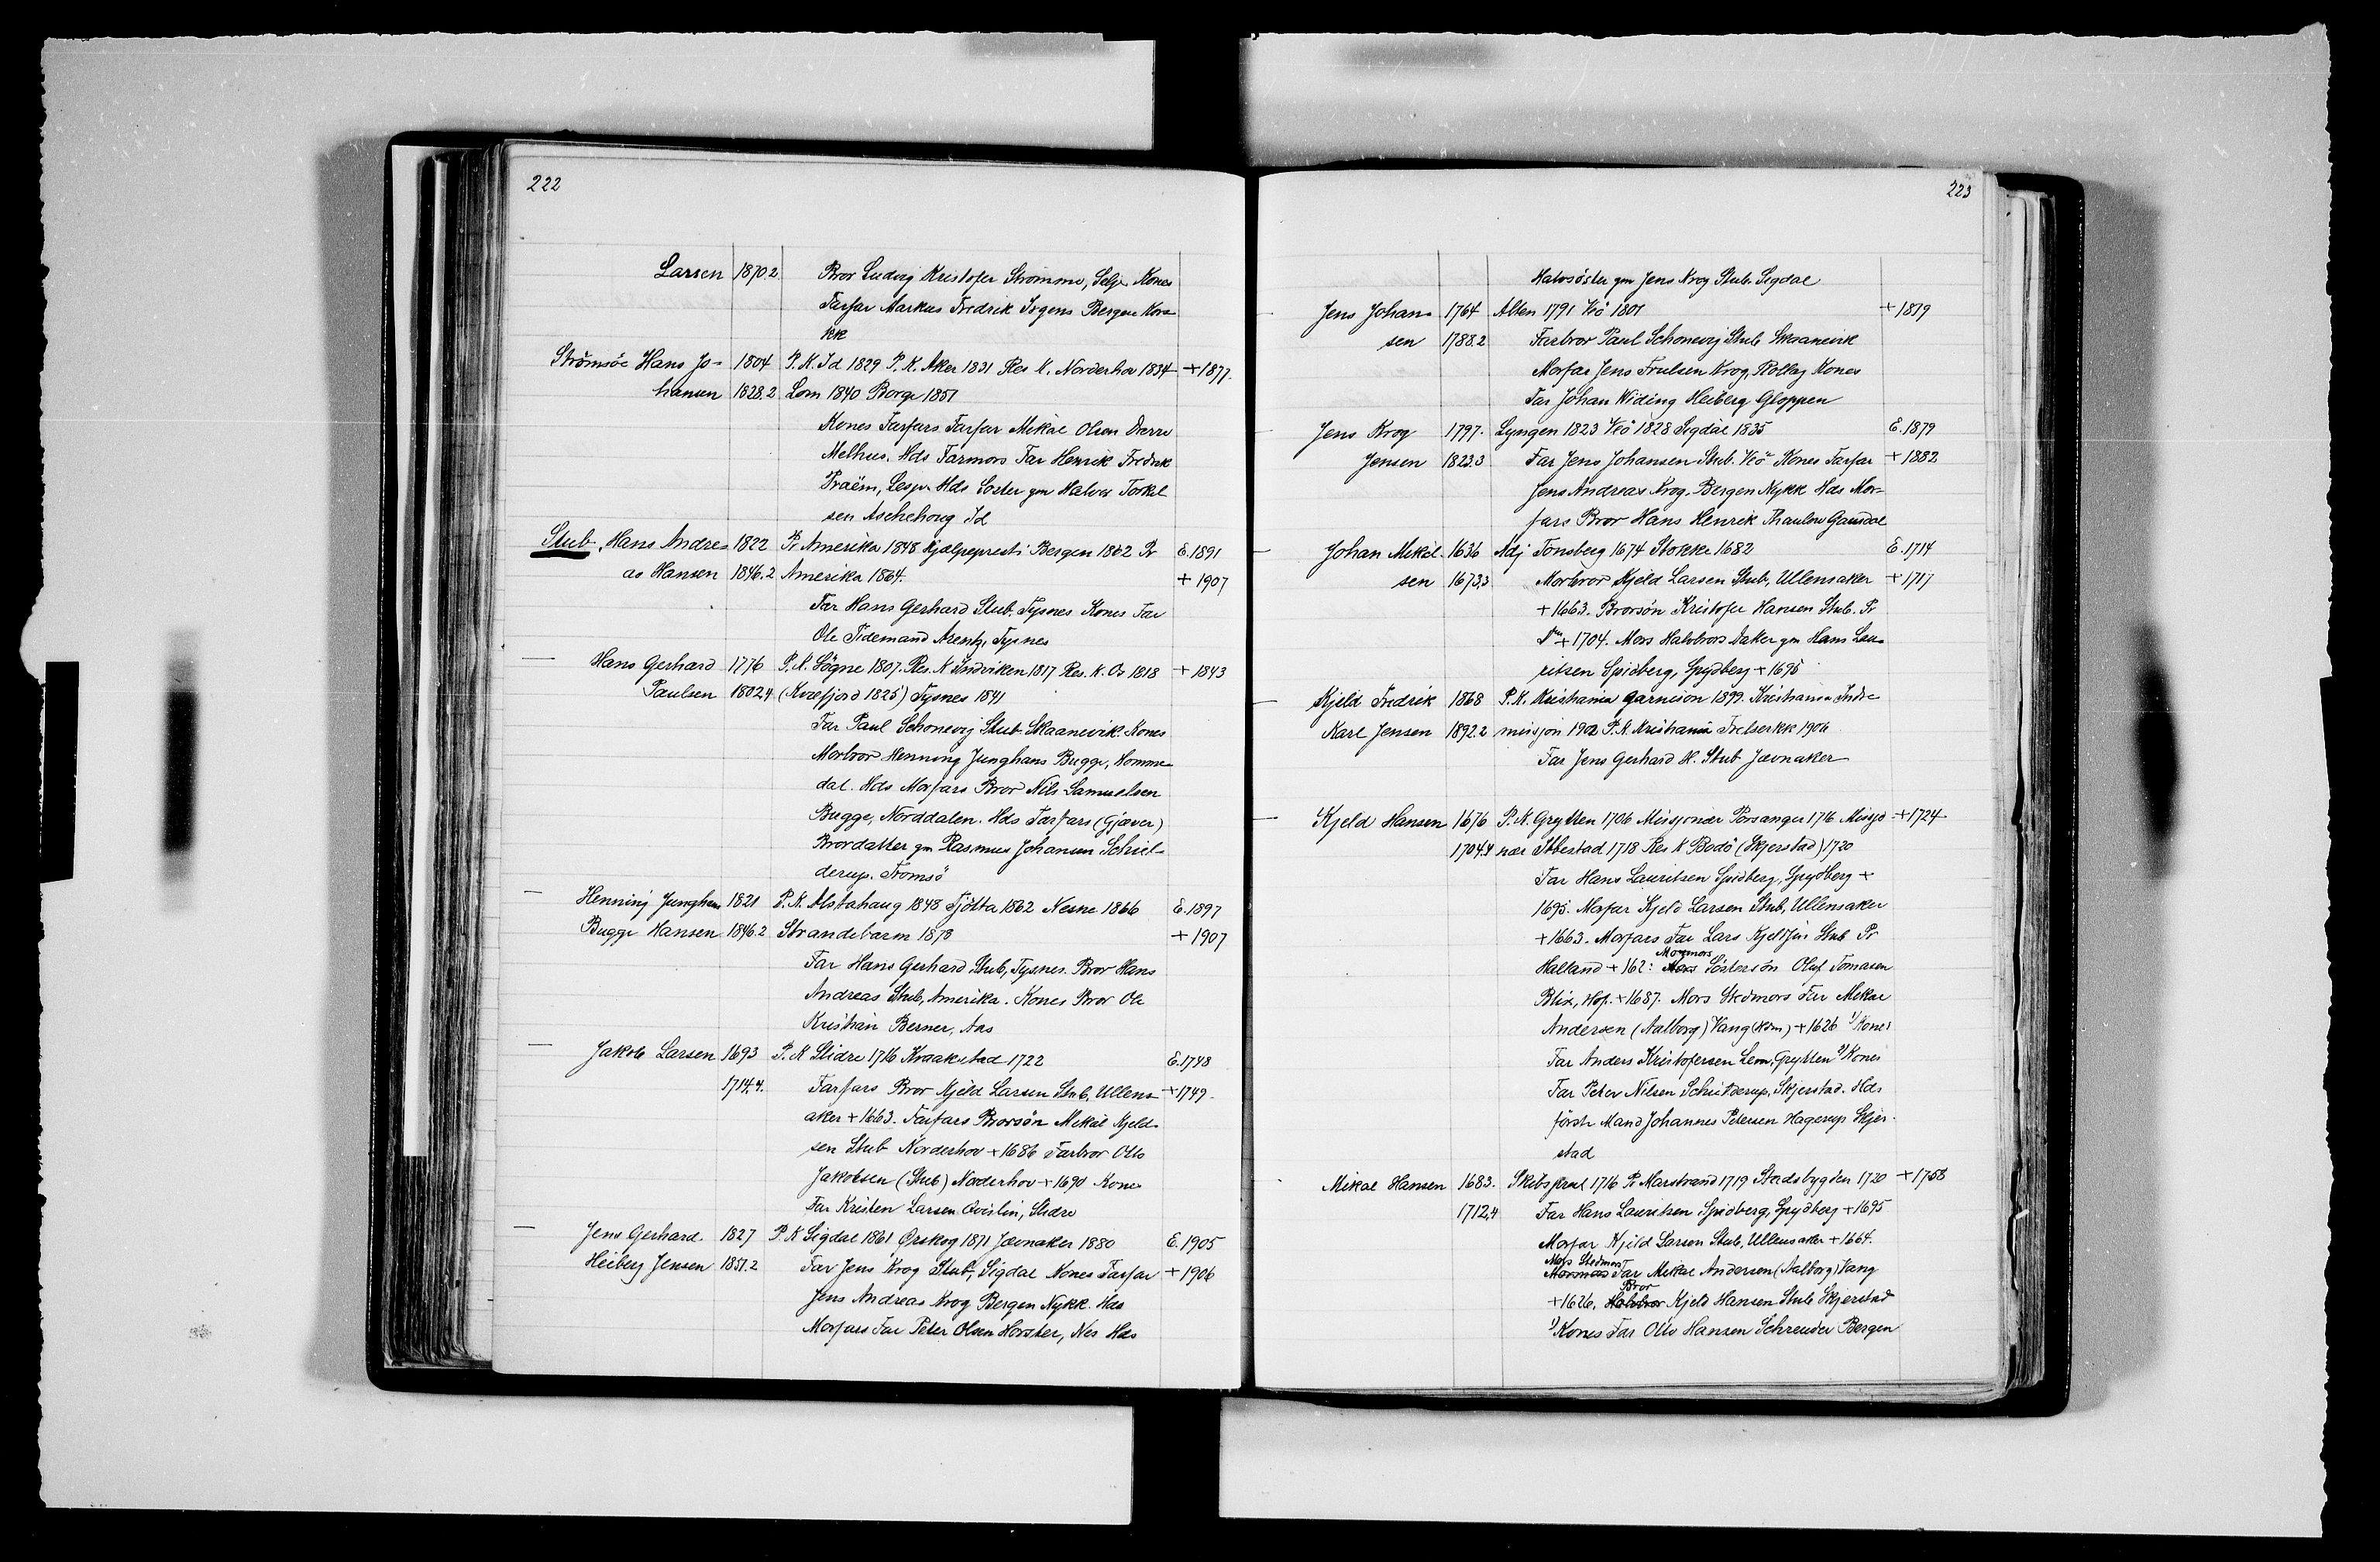 222
Larsen 1870.2 Bror Ludvig Kristofer Strømme, Selje Kones
Farfar Markus Fredrik Irgens Bergen Kors
kk
Strömsöe Hans Jo- 1804 P.K. Id 1829 P.K. Aker 1831 Res K. Norderhov 1834 +1877.
hansen 1828.2 Lom 1840 Borge 1851
Kones Farfars Farfar Mikal Olsen
Melhus. Hds Farmors Far Henrik Fredrik
Praëm, Lesje. Hds Söster gm Halvor Torkel
sen Aschehoug Id
Stub, Hans Andre- 1822 Pr Amerika 1848 Hjælpeprest i Bergen 1862 Pr E.1891
as Hansen 1846.2 Amerika 1864. +1907
Far Hans Gerhard Stub, Tysnes Kones Far
Ole Tidemand Arentz, Tysnes
— Hans Gerhard 1776 P.K. Sögne 1807. Res. K Indviken 1817 Res. K. Os 1818 +1843
Paulsen 1802.4 (Kvæfjord 1825) Tysnes 1841
Far Paul Schonevig Stub Skaanevik. Kones
Morbror Henning Junghans Bugge, Homme
dal. Hds Morfars Bror Nils Samuelsen
Bugge, Norddalen. Hds Farfars (Gjæver)
Brordatter gm Rasmus Johansen Schiel-
derup. Tromsö
— Henning Junghans 1821 P.K. Alstahaug 1848 Tjötta 1862 Nesne 1866 E.1897
Bugge Hansen 1846.2 Strandebarm 1878 +1907
Far Hans Gerhard Stub, Tysnes. Bror Hans
Andreas Stub, Amerika. Kones Bror Ole
Kristian Berner, Aas
— Jakob Larsen 1693 P.K Slidre 1716 Kraakstad 1722 E.1748
1714.4. Farfars Bror Kjeld Larsen Stub, Ullens +1749.
aker +1663. Farfars Brorsön Mikal Kjeld-
sen Stub Norderhov +1686 Farbror Otto
Jakobsen (Stub) Norderhov +1690 Kones
Far Kristen Larsen Qvislin, Slidre
— Jens Gerhard. 1827 P.K Sigdal 1861 Ørskog 1871 Jævnaker 1880 E.1905
Heiberg Jensen 1851.2 Far Jens Krog Stub, Sigdal Kones Farfar +1906
Jens Andreas Krog Bergen Nykk. Hds
Morfars Far Peter Olsen Horster, Nes Hds
223
Halvsöster gm Jens Krog Stub. Sigdal
— Jens Johan- 1764 Alten 1791 Veö 1801 +1819
sen 1788.2 Farbror Paul Schonevig Stub Skaanevik
Morfar Jens Truelsen Krog, Rollag Kones
Far Johan Widing Heiberg Gloppen
— Jens Krog 1797. Lyngen 1823 Veö 1828 Sigdal 1835 E.1879
Jensen 1823.3 Far Jens Johansen Stub. Veö Kones Farfar +1882
Jens Andreas Krog. Bergen Nykk Hds Mor-
fars Bror Hans Henrik Thaulow Gausdal
— Johan Mikel- 1636 Adj Tönsberg 1674 Stokke 1682 E.1714
sen 1673.3 Morbror Kjeld Larsen Stub, Ullensaker +1717
+1663. Brorsön Kristofer Hansen Stub. Pr
+1704. Mors Halvbrors Datter gm Hans Lau-
ritsen Spidberg, Spydberg +1695
— Kjeld Fredrik 1868 P.K. Kristiania Garnison 1899. Kristiania Indre-
Karl Jensen 1892.2 misjon 1902 P.K. Kristiania Frelserkk 1906
Far Jens Gerhard H. Stub Jævnaker
— Kjeld Hansen 1676 P.K. Grytten 1706 Missjonær Porsanger 1716 Missjo +1724
1704.4 nær Ibbestad 1718 Res K Bodö (Skjerstad) 1720
Far Hans Lauritsen Spidberg, Spydberg +
1695. Morfar Kjeld Larsen Stub, Ullensaker
+1663. Morfars Far Lars Kjeldsen Stub Pr
Halland +162: Mormors Mors Söstersön Oluf Tomasen
Blix, Hof. +1687. Mors Stedmors Far Mikal
Andersen (Aalborg) Vang (Hdm) +1626 1) Kones
Far Anders Kristofersen Lem, Grytten 2) Kones
Far Peter Nilsen Schielderup, Skjerstad. Hds
förste Mand Johannes Petersen Hagerup Skjer-
stad
Mikal Hansen 1683. Skibsprest 1716 Pr Marstrand 1719 Stadsbygden 1720 +1758
1712.4 Far Hans Lauritsen Spidberg, Spydberg +1695
Morfar Kjeld Larsen Stub, Ullensaker +1664.
Mors Stedmors Mormors Far Mikal Andersen (Aalborg) Vang
+1626, Bror Halvbror Kjeld Hansen Stub Skjerstad
1) Kones Far Otto Hansen Schreuder Bergen